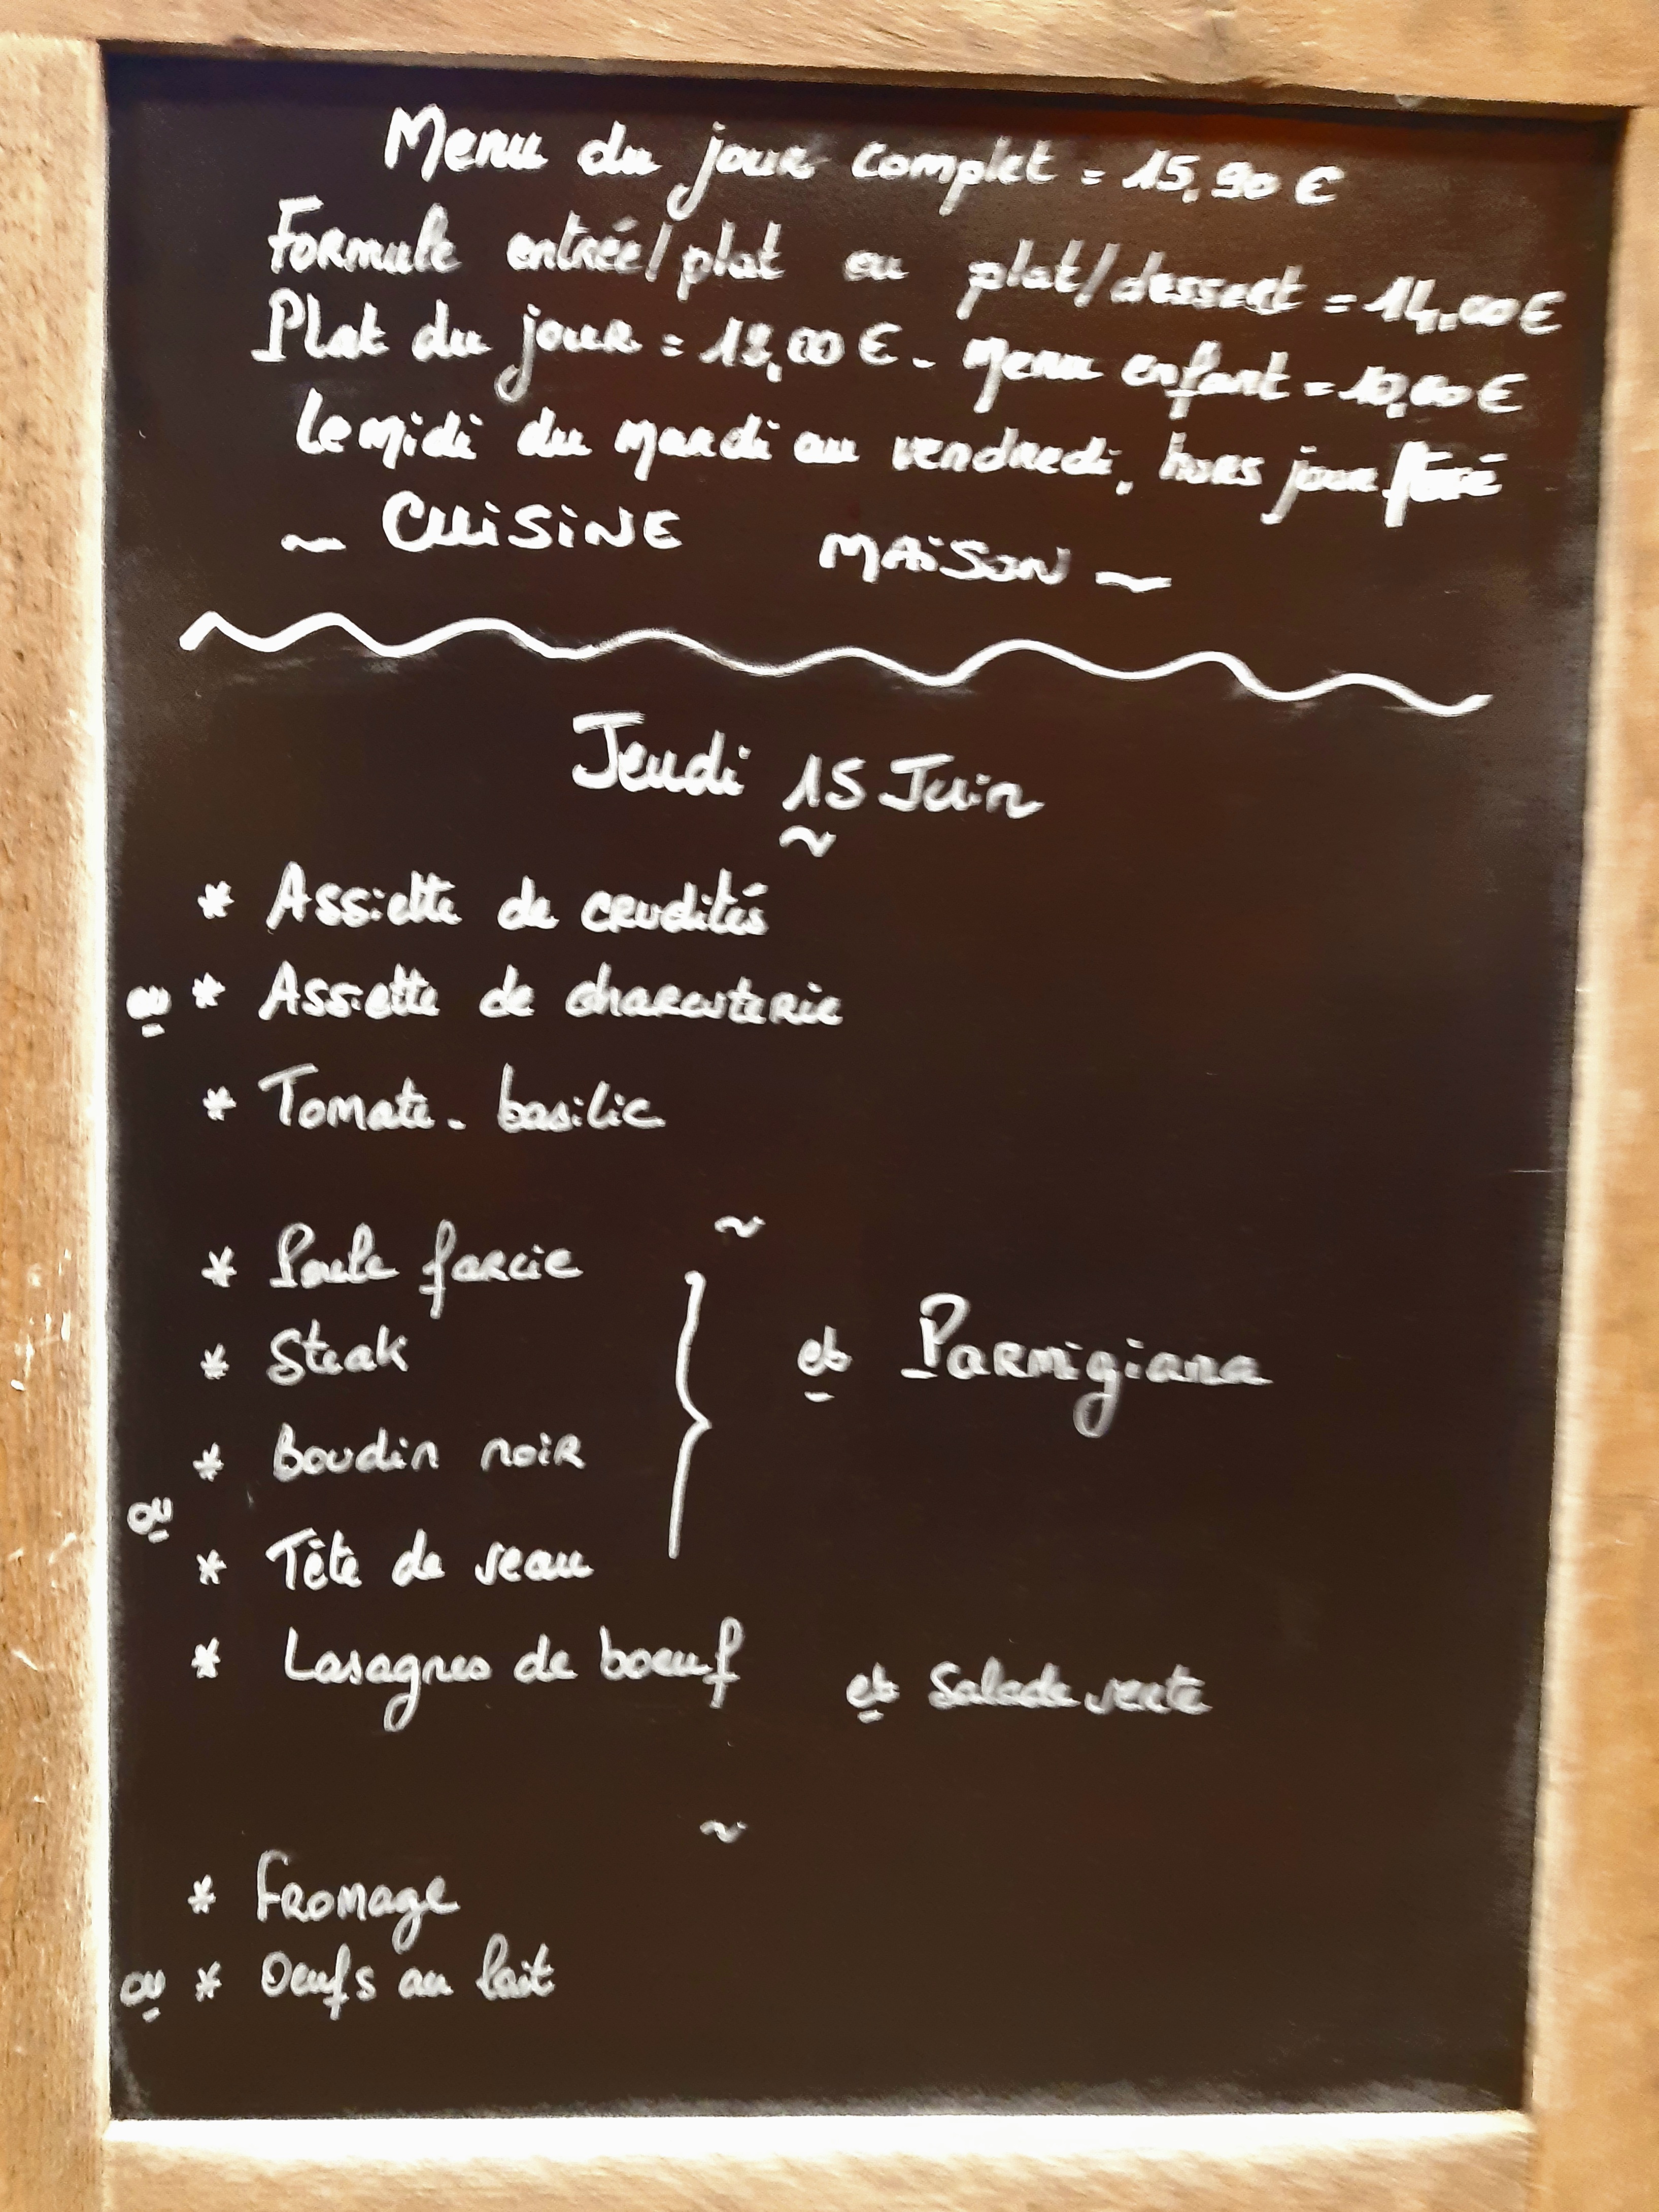 Menu du jour complet = 15,90 €
Formule entrée/plat ou plat/dessert = 14,00 €
Plat du jour = 12,00 € - Menu enfant = 10,00 €
Le midi du mardi au vendredi, hors jour férié
~ CUISINE MAISON ~
Jeudi 15 Juin
~
* Assiette de crudités
ou * Assiette de charcuterie
* Tomate - basilic
~
* Poule farcie
* Steak
et Parmigiana
* Boudin noir
ou
* Tête de veau
* Lasagnes de boeuf et Salade verte
~
* Fromage
ou * Oeufs au lait